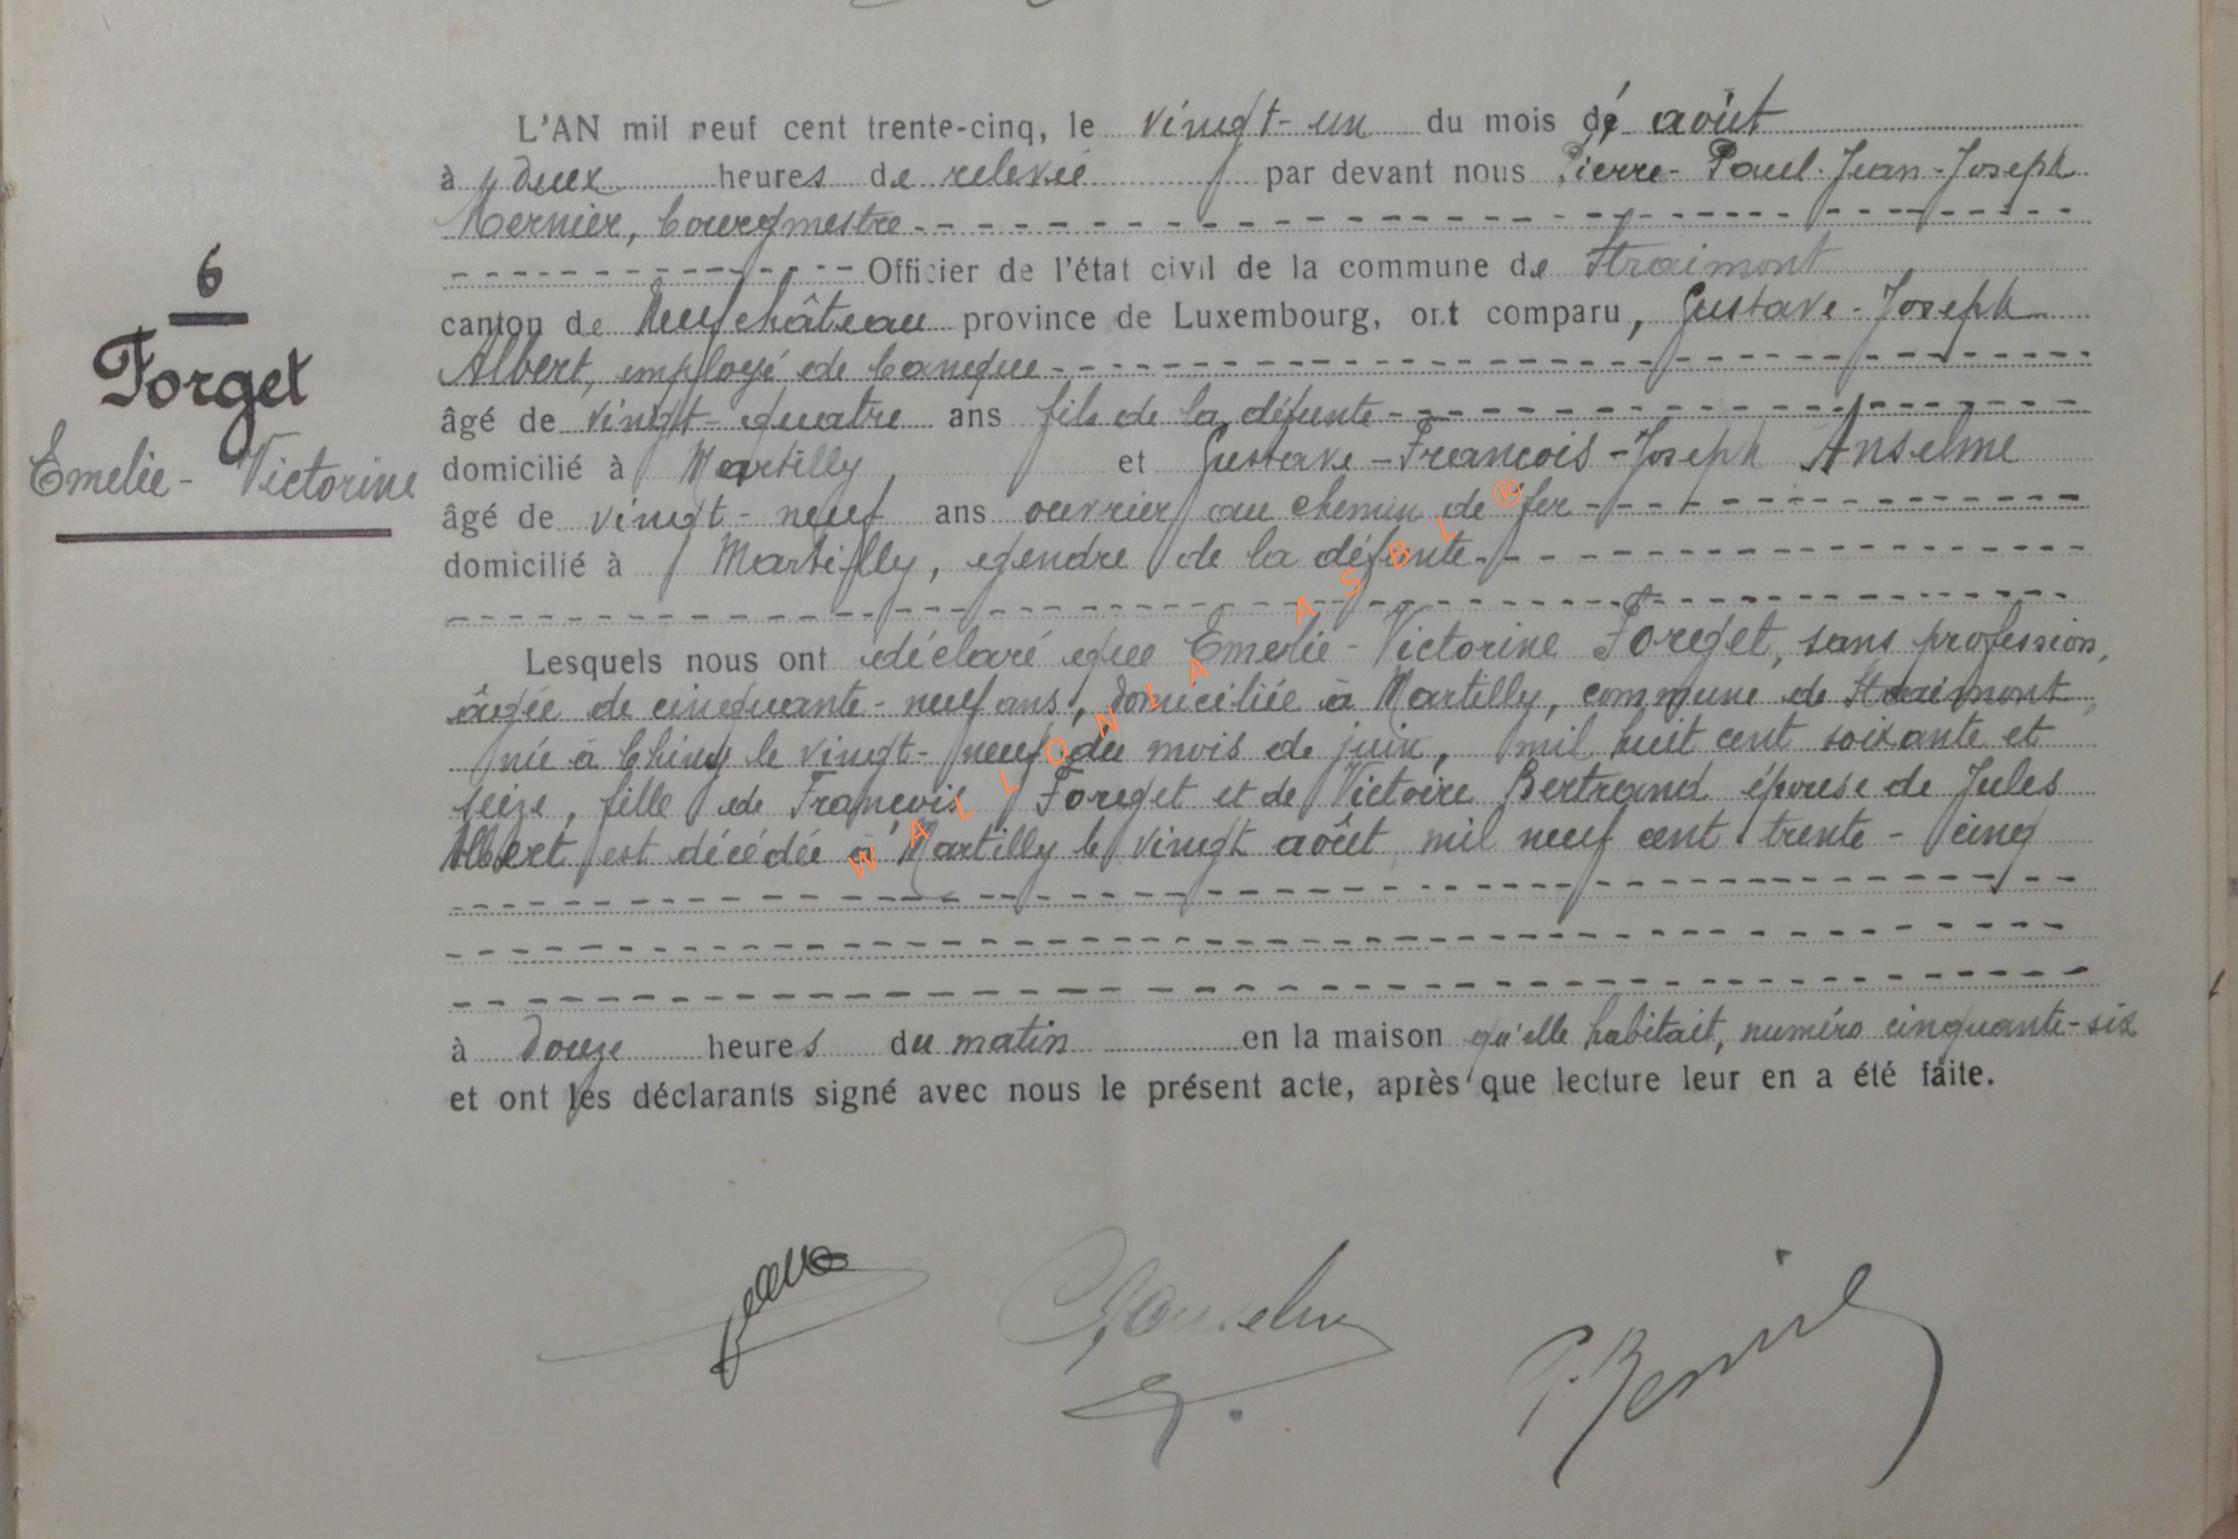 6
Forget
Emelie - Victorine
L'AN mil neuf cent trente-cinq, le vingt-un du mois de août
à deux heures de relevée par devant nous Pierre-Paul-Jean-Joseph
Mernier, bourgmestre
Officier de l'état civil de la commune de Straimont
canton de Neufchâteau province de Luxembourg, ont comparu, Gustave-Joseph
Albert, employé de banque
âgé de vingt-quatre ans fils de la défunte
domicilié à Martilly, et Gustave-François-Joseph Anselme
âgé de vingt-neuf ans ouvrier au chemin de fer
domicilié à Martilly, gendre de la défunte
Lesquels nous ont déclaré que Emelie-Victorine Forget, sans profession,
âgée de cinquante-neuf ans, domiciliée à Martilly, commune de Straimont,
née à Chiny le vingt-neuf du mois de juin, mil huit cent soixante et
seize, fille de François Forget et de Victoire Bertrand épouse de Jules
Albert est décédée à Martilly le vingt août mil neuf cent trente-cinq
à douze heures du matin en la maison qu'elle habitait, numéro cinquante-six
et ont les déclarants signé avec nous le présent acte, après que lecture leur en a été faite.
WALLONIA ASBL ®